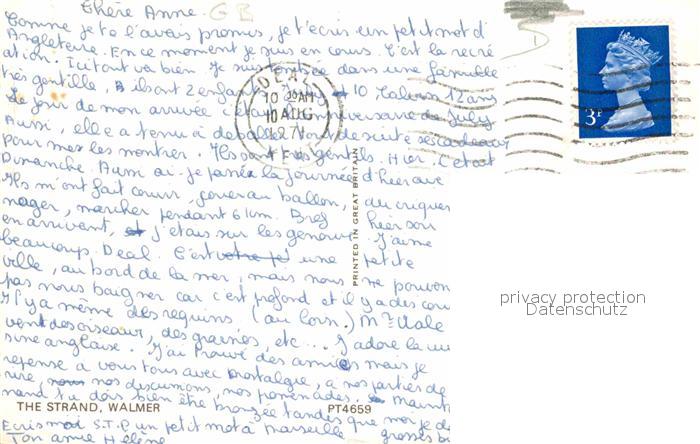 Chère Anne. GB
Comme je te l'avais promis, je t'écris un petit mot d'
Angleterre. En ce moment je suis en cours. C'est la récré
ation. Ici tout va bien. Je suis dans une famille
très gentille, ils ont 2 enfants 10 Julian 12 ans
Le jour de mon arrivée c'était l'anniversaire de July
Aussi, elle a tenu à déballer tout de suite ses cadeaux
pour me les montrer. Ils sont très gentils. Hier c'était
Dimanche. Aussi ai-je passé la journée d'hier avec
Ils m'ont fait courir, jouer au ballon, au criquet
nager, marcher pendant 6 km. Bref hier soir
en arrivant, j'étais sur les genoux. J'aime
beaucoup Deal. C'est une petite
ville, au bord de la mer, mais nous ne pouvons
pas nous baigner car c'est profond et il y a des cou
Il y a même des requins (au loin.) Mr Vale
vent des oiseaux, des graines, etc... J'adore la cui
sine anglaise. J'ai trouvé des amies mais je
repense à vous tous avec nostalgie, à nos parties de
rire, nos discussions, nos promenades. Mainte
nant tu dois bien être bronzée tandis que moi je
Ecris moi S.T.P un petit mot à Marseille grosses b
Ton amie Hélène
DEAL
10 30AM
10 AUG
1971
KENT
3P
PRINTED IN GREAT BRITAIN
privacy protection
Datenschutz
THE STRAND, WALMER PT4659